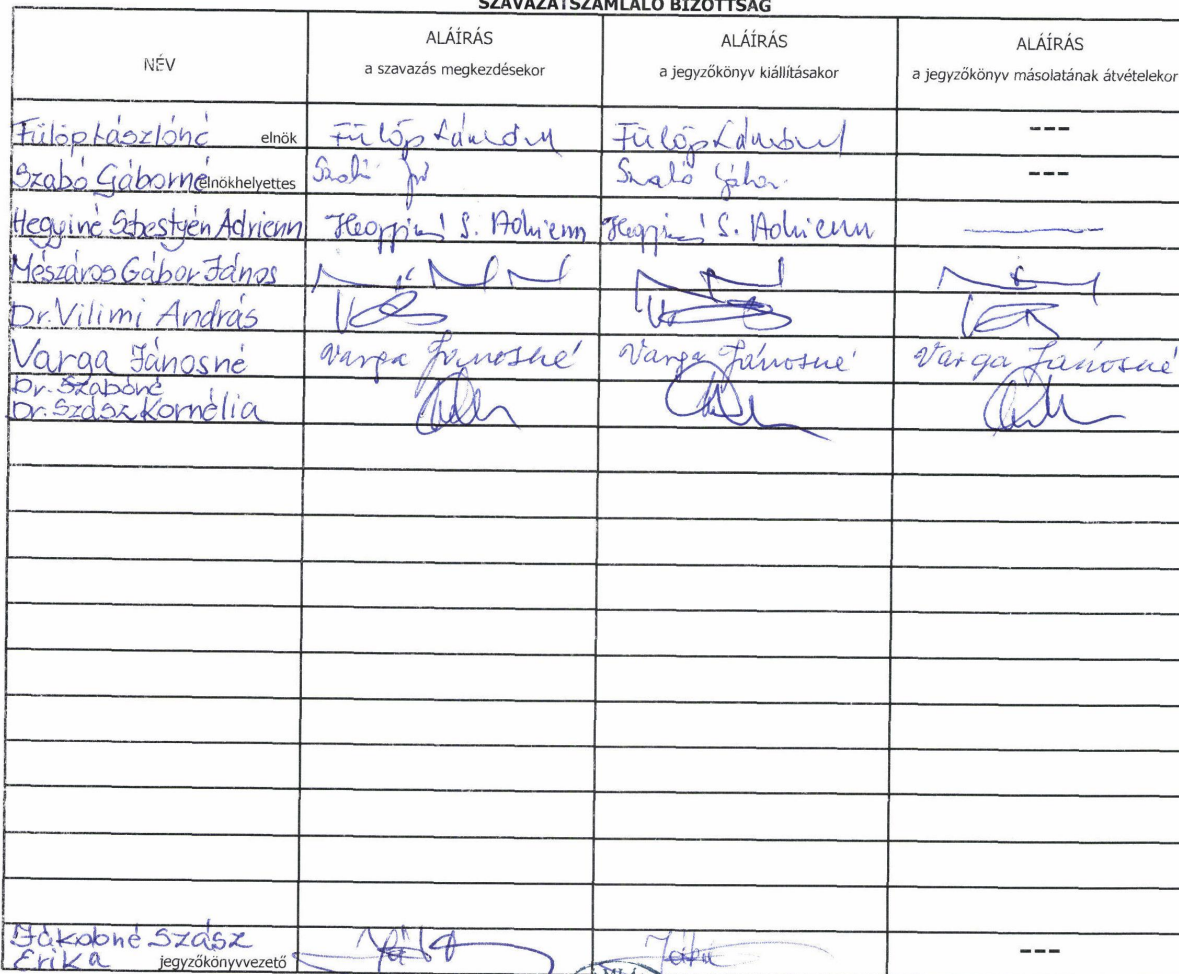 SZAVAZATSZÁMLÁLÓ BIZOTTSÁG
NÉV
ALÁÍRÁS
a szavazás megkezdésekor
ALÁÍRÁS
a jegyzőkönyv kiállításakor
ALÁÍRÁS
a jegyzőkönyv másolatának átvételekor
Fülöp Lászlóné elnök Fülöp Fülöp ---
Szabó Gáborné elnökhelyettes Szabó Gábor ---
Hegyiné Sebestyén Adrienn Hegyiné S. Adrienn Hegyiné S. Adrienn
Mészáros Gábor János
Dr. Vilimi András
Varga Jánosné Varga Jánosné Varga Jánosné Varga Jánosné
Dr. Szabóné
Dr. Szász Kornélia
Jákobné Szász
Erika jegyzőkönyvvezető ---